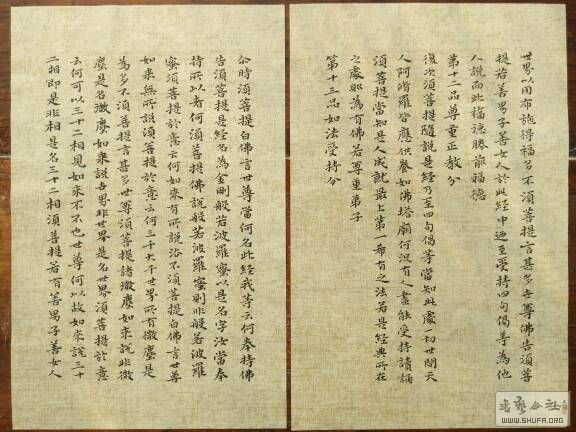 世界以用布施得福多不須菩提言甚多世尊佛告須菩
提若善男子善女人於此經中迺至受持四句偈等為他
人說而此福德勝前福德
第十二品尊重正教分
復次須菩提隨說是經乃至四句偈等當知此處一切世間天
人阿脩羅皆應供養如佛塔廟何況有人盡能受持讀誦
須菩提當知是人成就最上第一希有之法若是經典所在
之處即為有佛若尊重弟子
第十三品如法受持分
尒時須菩提白佛言世尊當何名此經我等云何奉持佛
告須菩提是經名為金剛般若波羅蜜以是名字汝當奉
持所以者何須菩提佛說般若波羅蜜則非般若波羅
蜜須菩提於意云何如來有所說法不須菩提白佛言世尊
如來無所說須菩提於意云何三千大千世界所有微塵是
為多不須菩提言甚多世尊須菩提諸微塵如來說非微
塵是名微塵如來說世界非世界是名世界須菩提於意
云何可以三十二相見如來不不也世尊何以故如來說三十
二相即是非相是名三十二相須菩提若有善男子善女人
書藝公社
WWW.SHUFA.ORG